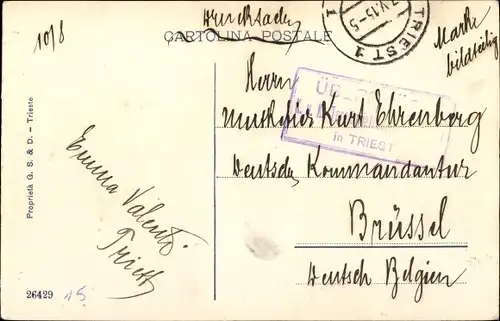 10/8
Drucksache
CARTOLINA POSTALE
V.15-5
TRIEST 1
1
Marke
bildseitig
Herrn
Musketier Kurt Ehrenberg
in TRIEST
Deutsche Kommandantur
Brüssel
Deutsch Belgien
Emma Valenti
Triest
Proprietà G. S. & D. – Trieste
26429
15